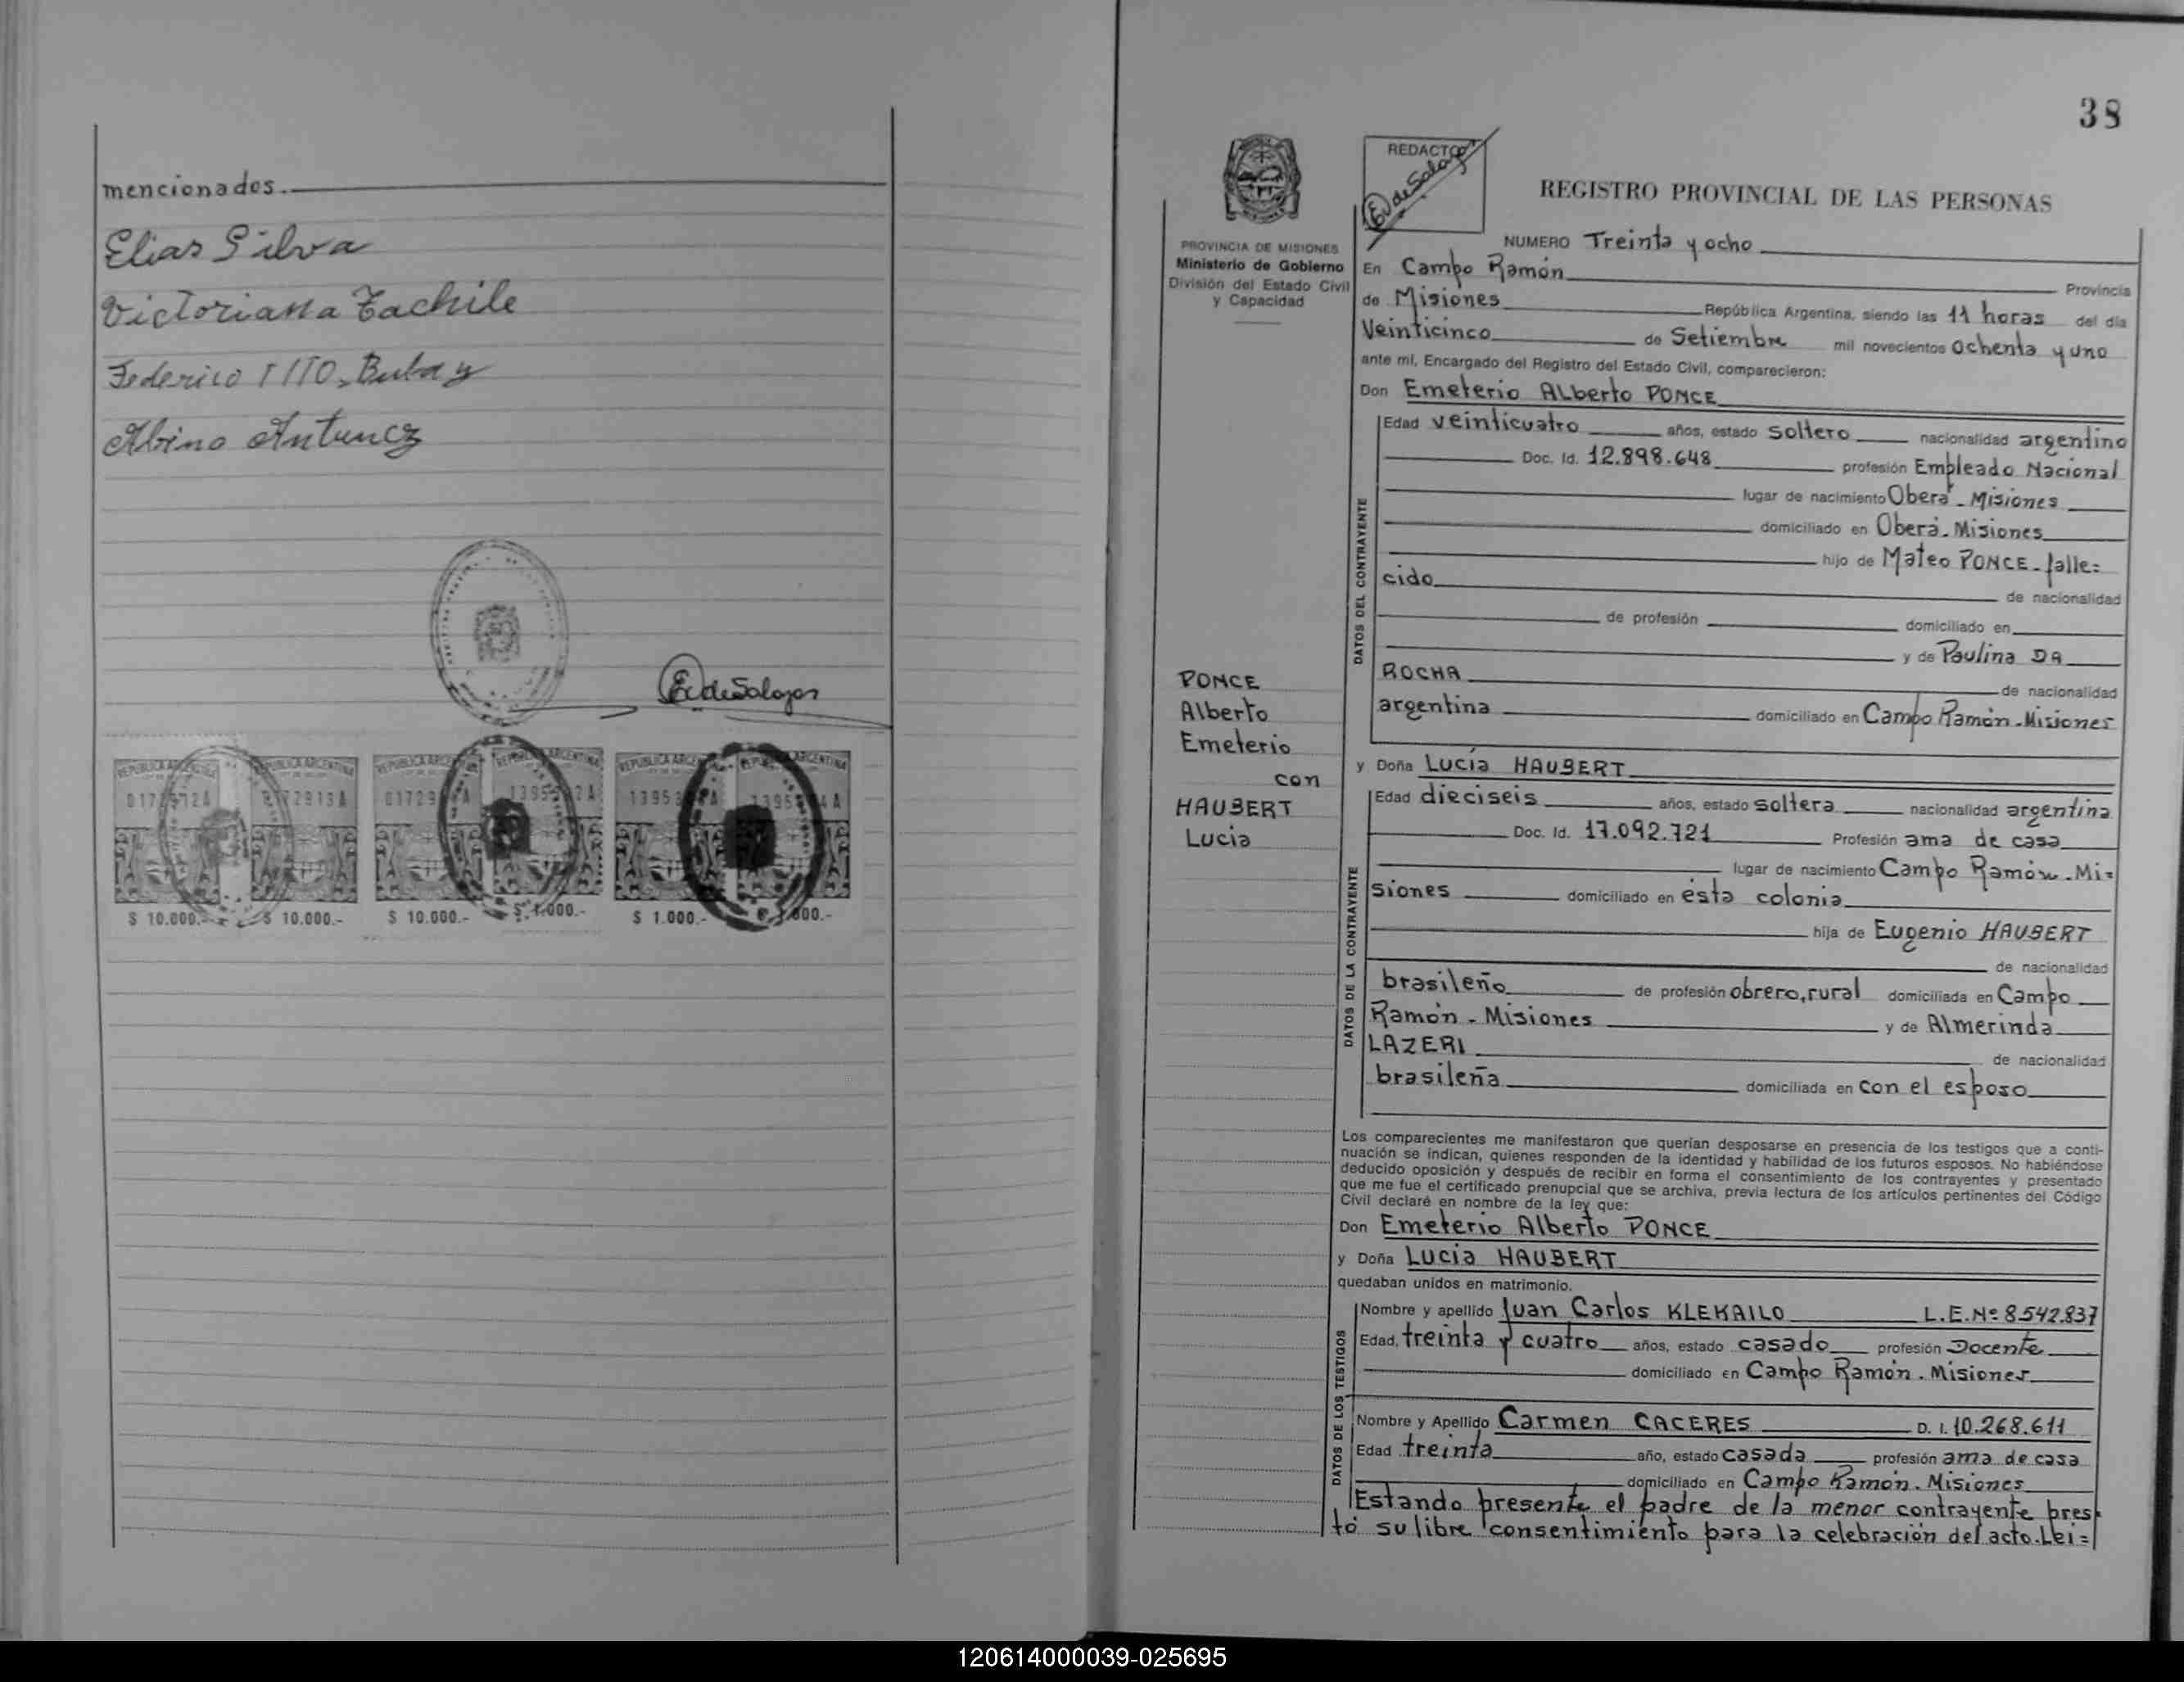 mencionados.
Elias Silva
Victoriana Tachile
Federico Bubay
Albino Antunez
E. de Salazar
REPUBLICA ARGENTINA
REPUBLICA ARGENTINA
REPUBLICA ARGENTINA
REPUBLICA ARGENTINA
$ 10.000.-
$ 10.000.-
$ 10.000.-
$ 1.000.-
$ 1.000.-
38
PROVINCIA DE MISIONES
Ministerio de Gobierno
División del Estado Civil
y Capacidad
REDACTOR
REGISTRO PROVINCIAL DE LAS PERSONAS
NUMERO Treinta y ocho
En Campo Ramón Provincia
de Misiones República Argentina, siendo las 11 horas del día
Veinticinco de Setiembre mil novecientos Ochenta y uno
ante mi, Encargado del Registro del Estado Civil, comparecieron:
Don Emeterio Alberto PONCE
DATOS DEL CONTRAYENTE
Edad veinticuatro años, estado soltero nacionalidad argentino
Doc. Id. 12.898.648 profesión Empleado Nacional
lugar de nacimiento Oberá - Misiones
domiciliado en Oberá - Misiones
hijo de Mateo PONCE - falle=
cido de nacionalidad
de profesión domiciliado en
y de Paulina DA
ROCHA de nacionalidad
argentina domiciliado en Campo Ramón - Misiones
PONCE
Alberto
Emeterio
con
HAUBERT
Lucia
y Doña Lucía HAUBERT
DATOS DE LA CONTRAYENTE
Edad dieciseis años, estado soltera nacionalidad argentina
Doc. Id. 17.092.721 Profesión ama de casa
lugar de nacimiento Campo Ramón - Mi=
siones domiciliado en ésta colonia
hija de Eugenio HAUBERT
de nacionalidad
brasileño de profesión obrero, rural domiciliada en Campo
Ramón - Misiones y de Almerinda
LAZERI de nacionalidad
brasileña domiciliada en con el esposo
Los comparecientes me manifestaron que querían desposarse en presencia de los testigos que a conti-
nuación se indican, quienes responden de la identidad y habilidad de los futuros esposos. No habiéndose
deducido oposición y después de recibir en forma el consentimiento de los contrayentes y presentado
que me fue el certificado prenupcial que se archiva, previa lectura de los artículos pertinentes del Código
Civil declaré en nombre de la ley que:
Don Emeterio Alberto PONCE
y Doña Lucia HAUBERT
quedaban unidos en matrimonio.
DATOS DE LOS TESTIGOS
Nombre y apellido Juan Carlos KLEKAILO L.E.Nº 8.542.837
Edad, treinta y cuatro años, estado casado profesión Docente
domiciliado en Campo Ramón - Misiones
Nombre y Apellido Carmen CACERES D. I. 10.268.611
Edad treinta año, estado casada profesión ama de casa
domiciliado en Campo Ramón - Misiones
Estando presente el padre de la menor contrayente pres-
tó su libre consentimiento para la celebración del acto. Lei=
120614000039-025695